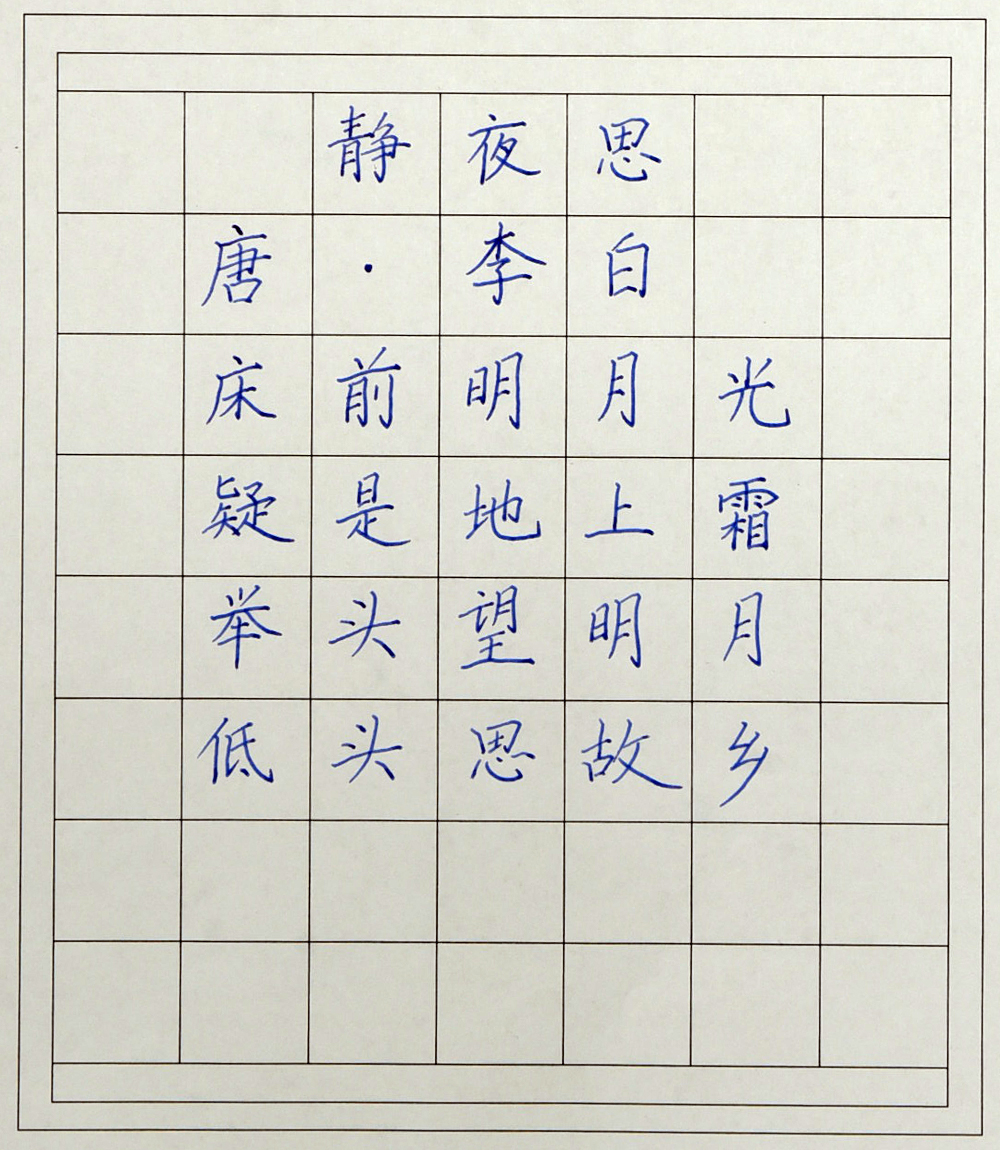 静夜思
唐·李白
床前明月光
疑是地上霜
举头望明月
低头思故乡